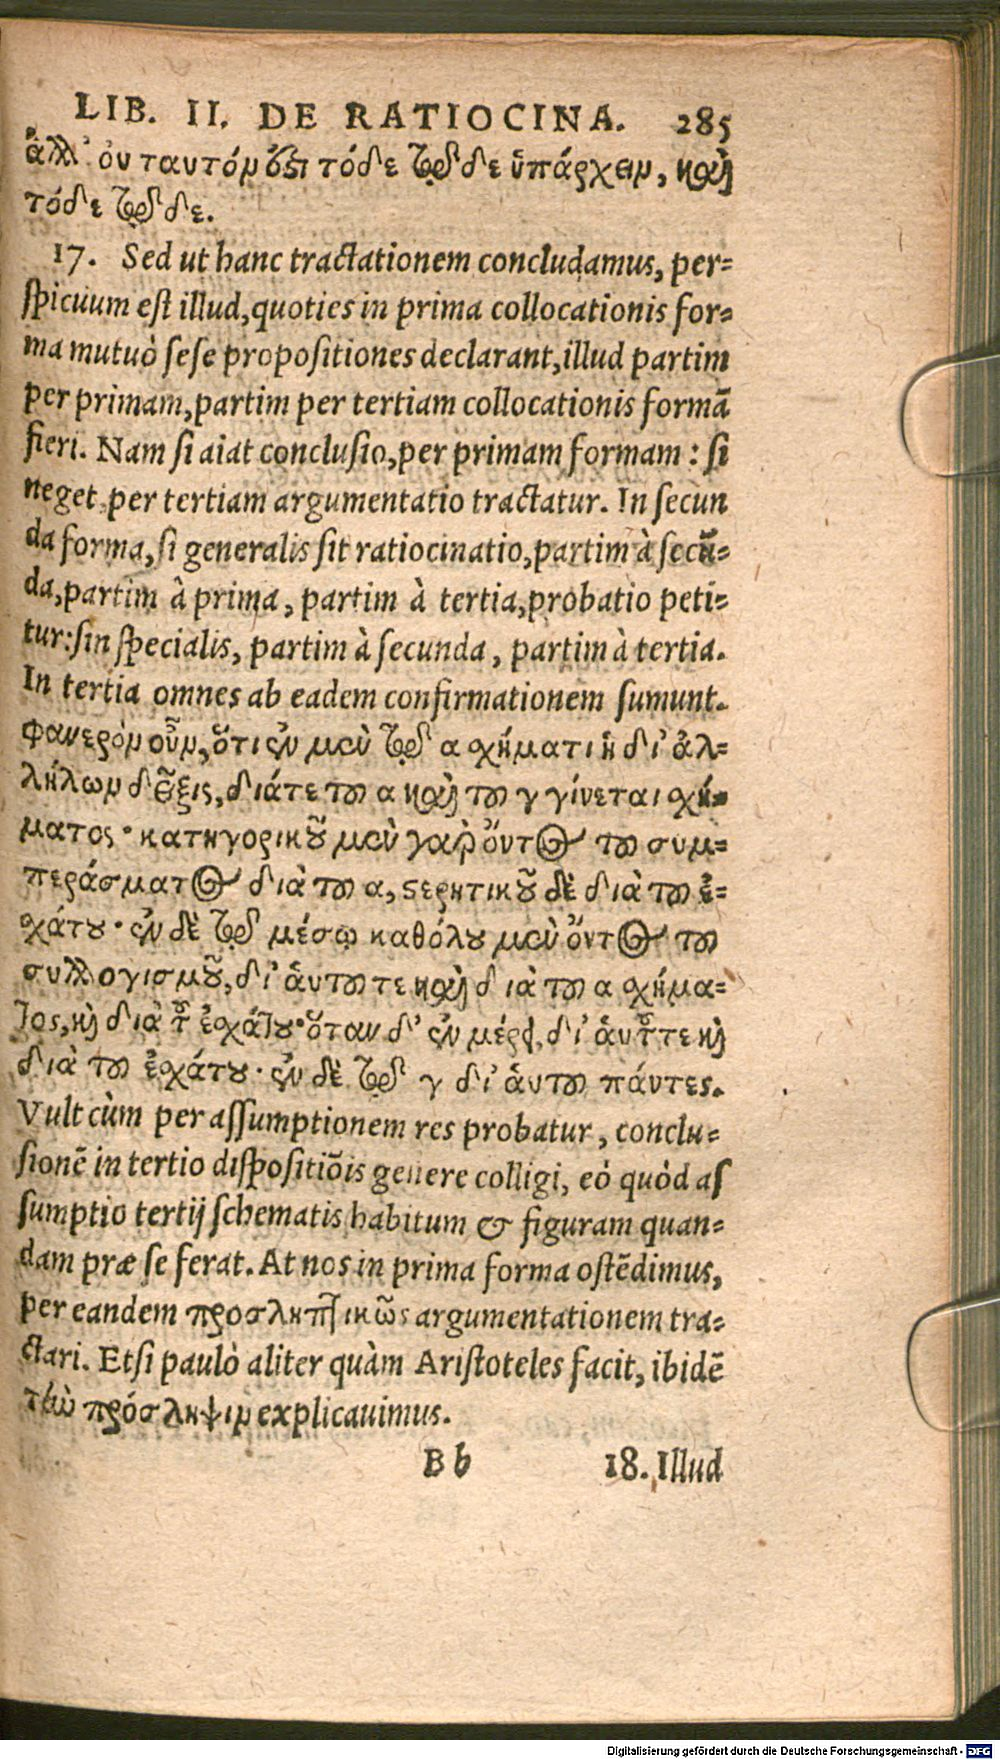 LIB. II. DE RATIOCINA. 285
ἀλλ' οὐ ταυτόν ἐστι τόδε τῷδε ὑπάρχειν, καὶ
τόδε τῷδε.
17. Sed ut hanc tractationem concludamus, per-
spicuum est illud, quoties in prima collocationis for-
ma mutuò sese propositiones declarant, illud partim
per primam, partim per tertiam collocationis formã
fieri. Nam si aiat conclusio, per primam formam: si
neget, per tertiam argumentatio tractatur. In secun
da forma, si generalis sit ratiocinatio, partim à secũ-
da, partim à prima, partim à tertia, probatio peti-
tur: sin specialis, partim à secunda, partim à tertia.
In tertia omnes ab eadem confirmationem sumunt.
Φανερὸν οὖν, ὅτι ἐν μὲν τῷ α σχήματι ἡ δι' ἀλ-
λήλων δεῖξις, διάτε τοῦ α καὶ τοῦ γ γίνεται σχή-
ματος· κατηγορικοῦ μὲν γὰρ ὄντος τοῦ συμ-
περάσματος διὰ τοῦ α, στερητικοῦ δὲ διὰ τοῦ ἐ-
σχάτου· ἐν δὲ τῷ μέσῳ καθόλου μὲν ὄντος τοῦ
συλλογισμοῦ, δι' αὑτοῦ τε καὶ διὰ τοῦ α σχήμα-
τος, καὶ διὰ τοῦ ἐσχάτου· ὅταν δ' ἐν μέρει, δι' αὑτοῦ τε καὶ
διὰ τοῦ ἐσχάτου· ἐν δὲ τῷ γ δι' αὑτοῦ πάντες.
Vult cùm per assumptionem res probatur, conclu-
sionẽ in tertio dispositiõis genere colligi, eò quòd as
sumptio tertij schematis habitum & figuram quan-
dam præ se ferat. At nos in prima forma ostẽdimus,
per eandem προσληπτικῶς argumentationem tra-
ctari. Etsi paulò aliter quàm Aristoteles facit, ibidẽ
τὴν πρόσληψιν explicauimus.
Bb 18. Illud
Digitalisierung gefördert durch die Deutsche Forschungsgemeinschaft - DFG